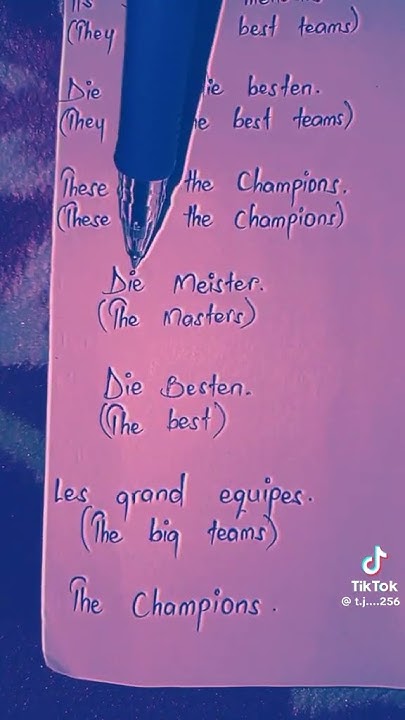 (They best teams)
Die besten.
(They best teams)
These the Champions.
(These the Champions)
Die Meister.
(The Masters)
Die Besten.
(The best)
Les grand equipes.
(The big teams)
The Champions.
TikTok
@ t.j....256